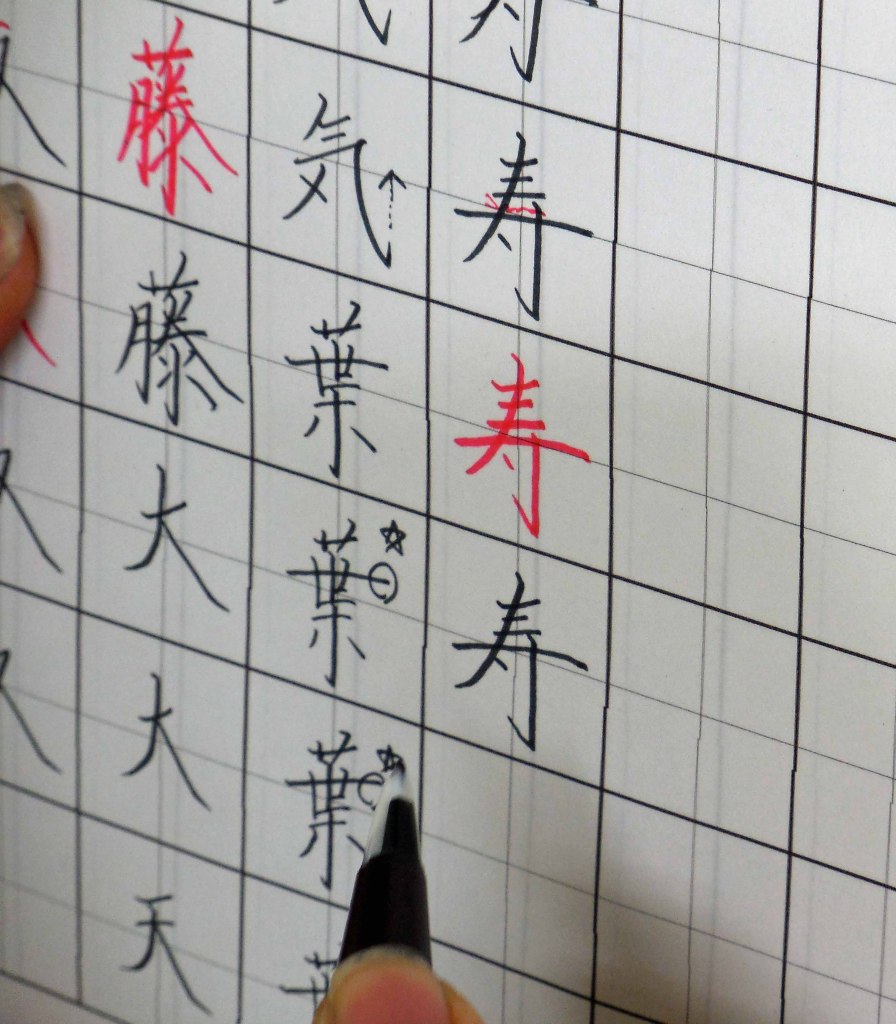 寿寿寿寿
気葉葉葉葉
藤藤大大天